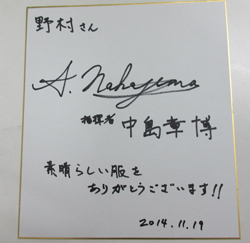 野村さん
A. Nakajima
指揮者 中島章博
素晴らしい服を
ありがとうございます!!
2014.11.19